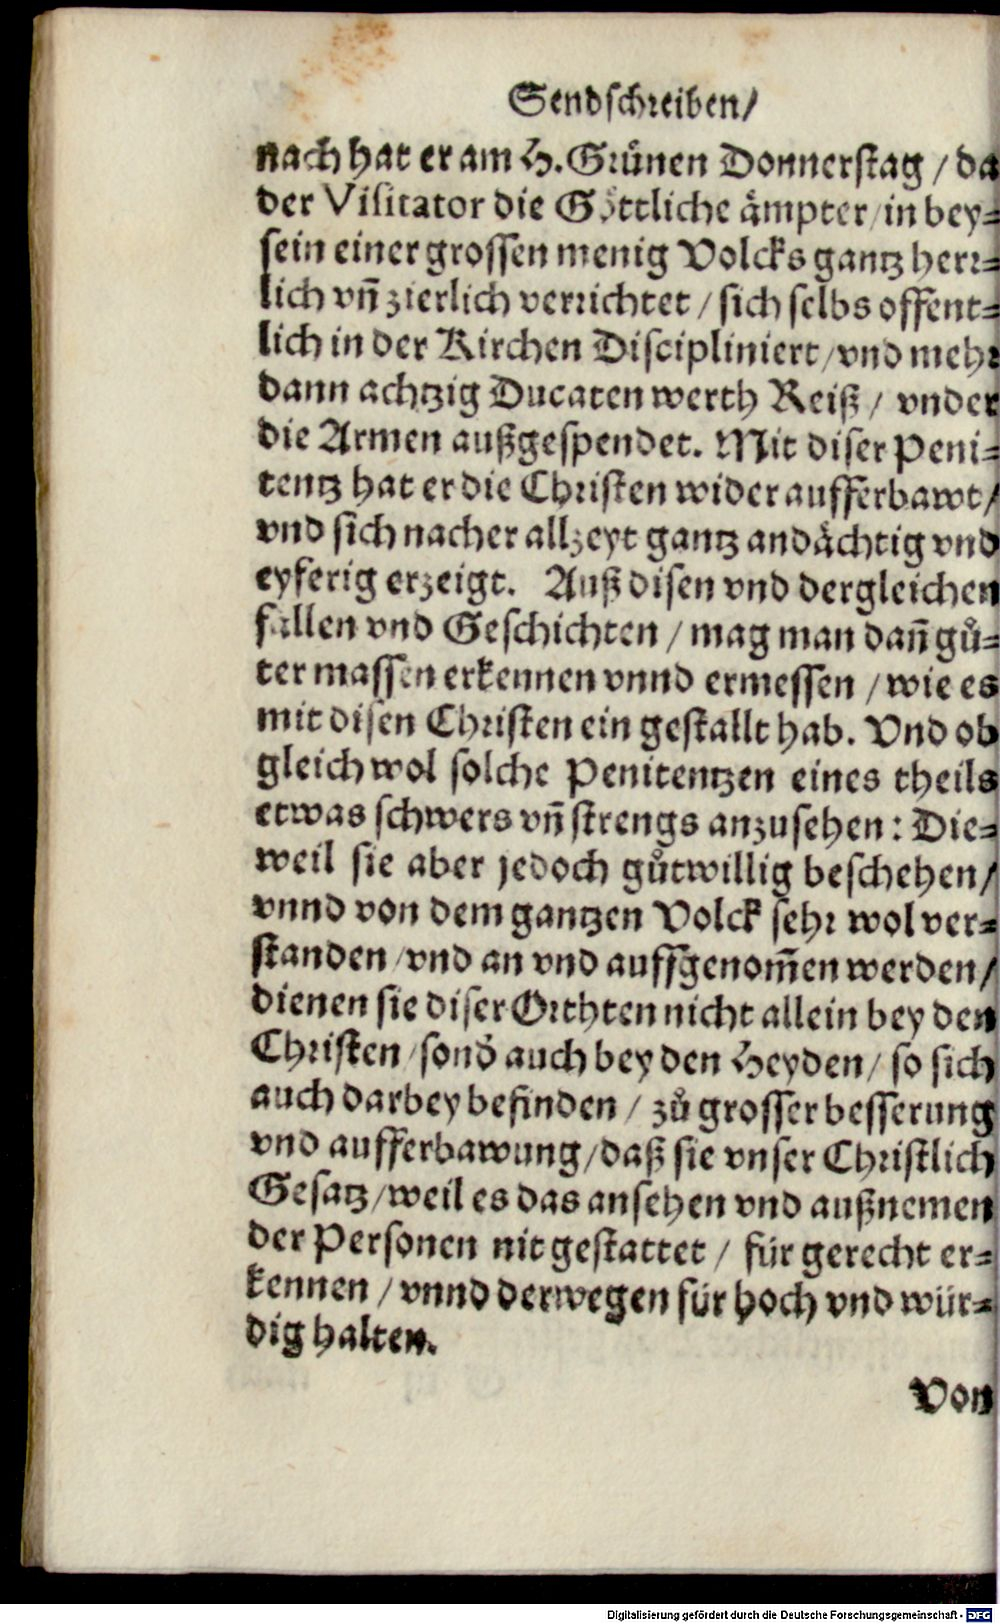 Sendschreiben/
nach hat er am H. Grünen Donnerstag / da
der Visitator die Göttliche ämpter / in bey⸗
sein einer grossen menig Volcks gantz herr⸗
lich vñ zierlich verrichtet / sich selbs offent⸗
lich in der Kirchen Discipliniert / vnd mehr
dann achtzig Ducaten werth Reiß / vnder
die Armen außgespendet. Mit diser Peni⸗
tentz hat er die Christen wider aufferbawt /
vnd sich nacher allzeyt gantz andächtig vnd
eyferig erzeigt. Auß disen vnd dergleichen
fällen vnd Geschichten / mag man dañ gů⸗
ter massen erkennen vnnd ermessen / wie es
mit disen Christen ein gestallt hab. Vnd ob
gleich wol solche Penitentzen eines theils
etwas schwers vñ strengs anzusehen: Die⸗
weil sie aber jedoch gůtwillig beschehen /
vnnd von dem gantzen Volck sehr wol ver⸗
standen / vnd an vnd auffgenom̃en werden /
dienen sie diser Orthten nicht allein bey den
Christen / sond̛ auch bey den Heyden / so sich
auch darbey befinden / zů grosser besserung
vnd aufferbawung / daß sie vnser Christlich
Gesatz / weil es das ansehen vnd außnemen
der Personen nit gestattet / für gerecht er⸗
kennen / vnnd derwegen für hoch vnd wür⸗
dig halten.
Von
Digitalisierung gefördert durch die Deutsche Forschungsgemeinschaft - DFG